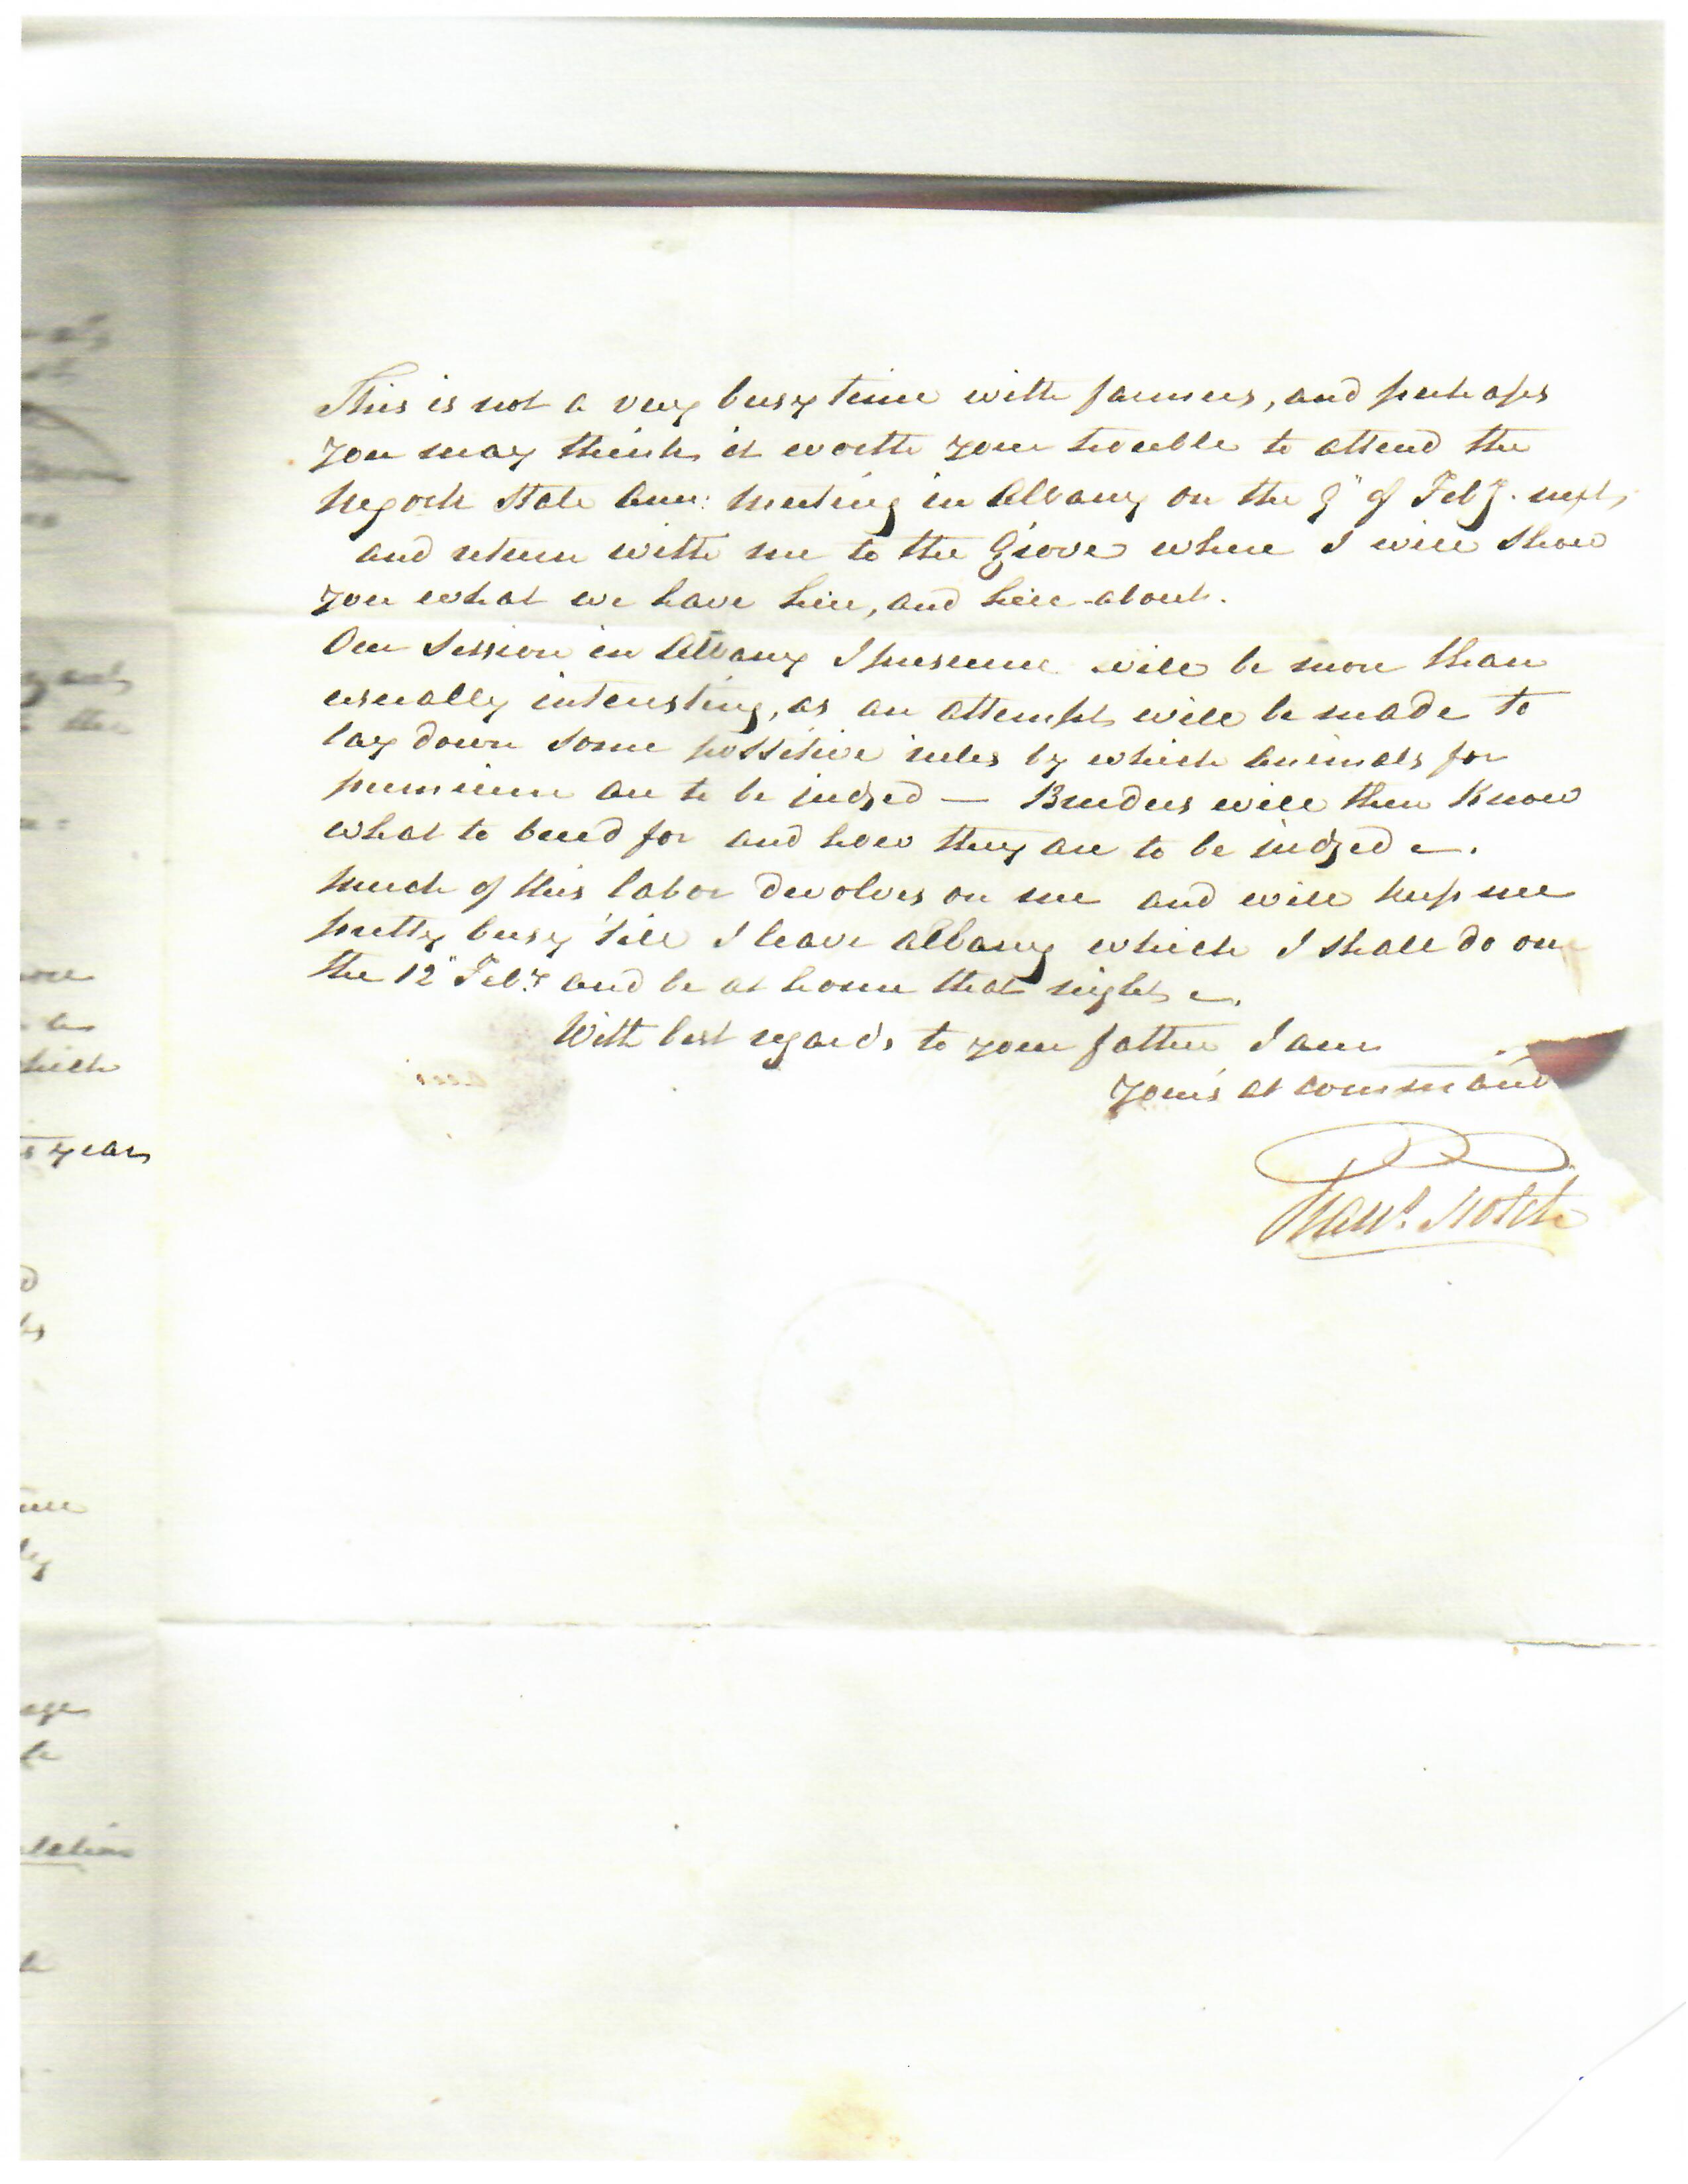 This is not a very busy time with farmers, and perhaps
you may think it worth your trouble to attend the
NeYork State Ann: Meeting in Albany on the of Feby. next,
and return with me to the Grove where I will show
you what we have here, and here-about.
Our Session in Albany I presume will be more than
usually interesting, as an attempt will be made to
lay down some possitive rules by which animals for
premium are to be judged — Breeders will then Know
what to breed for and how they are to be judged —.
Much of this labor devolves on me and will keep me
pretty busy 'till I leave Albany which I shall do on
the 12" Feby. and be at home that night —.
With best regards to your father I am
Yours at command
Fran.s Rotch
years
the
which